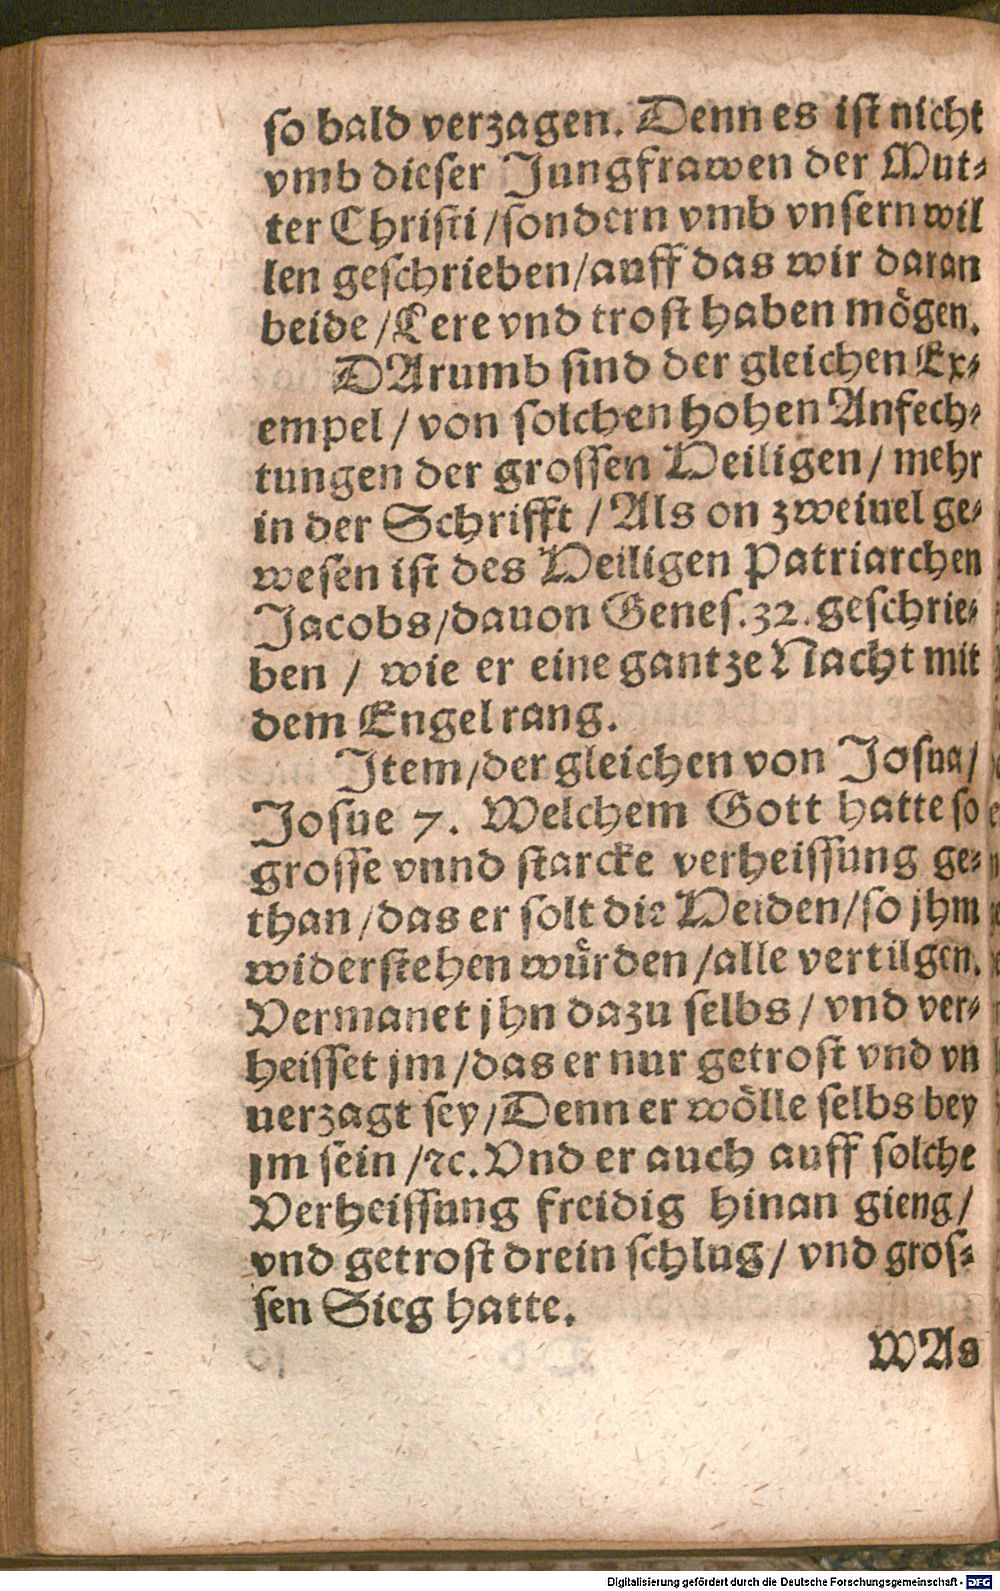 so bald verzagen. Denn es ist nicht
vmb dieser Jungfrawen der Mut⸗
ter Christi /sondern vmb vnsern wil
len geschrieben/auff das wir daran
beide /Lere vnd trost haben mögen.
DArumb sind der gleichen Ex⸗
empel / von solchen hohen Anfech⸗
tungen der grossen Heiligen / mehr
in der Schrifft / Als on zweiuel ge⸗
wesen ist des Heiligen Patriarchen
Jacobs/dauon Genes.32.geschrie⸗
ben / wie er eine gantze Nacht mit
dem Engel rang.
Item/der gleichen von Josua/
Josue 7. Welchem Gott hatte so
grosse vnnd starcke verheissung ge⸗
than /das er solt die Heiden/so jhm
widerstehen würden /alle vertilgen.
Vermanet jhn dazu selbs / vnd ver⸗
heisset jm /das er nur getrost vnd vn
uerzagt sey/Denn er wölle selbs bey
jm sein /ꝛc. Vnd er auch auff solche
Verheissung freidig hinan gieng/
vnd getrost drein schlug/ vnd gros⸗
sen Sieg hatte.
WAs
Digitalisierung gefördert durch die Deutsche Forschungsgemeinschaft - DFG